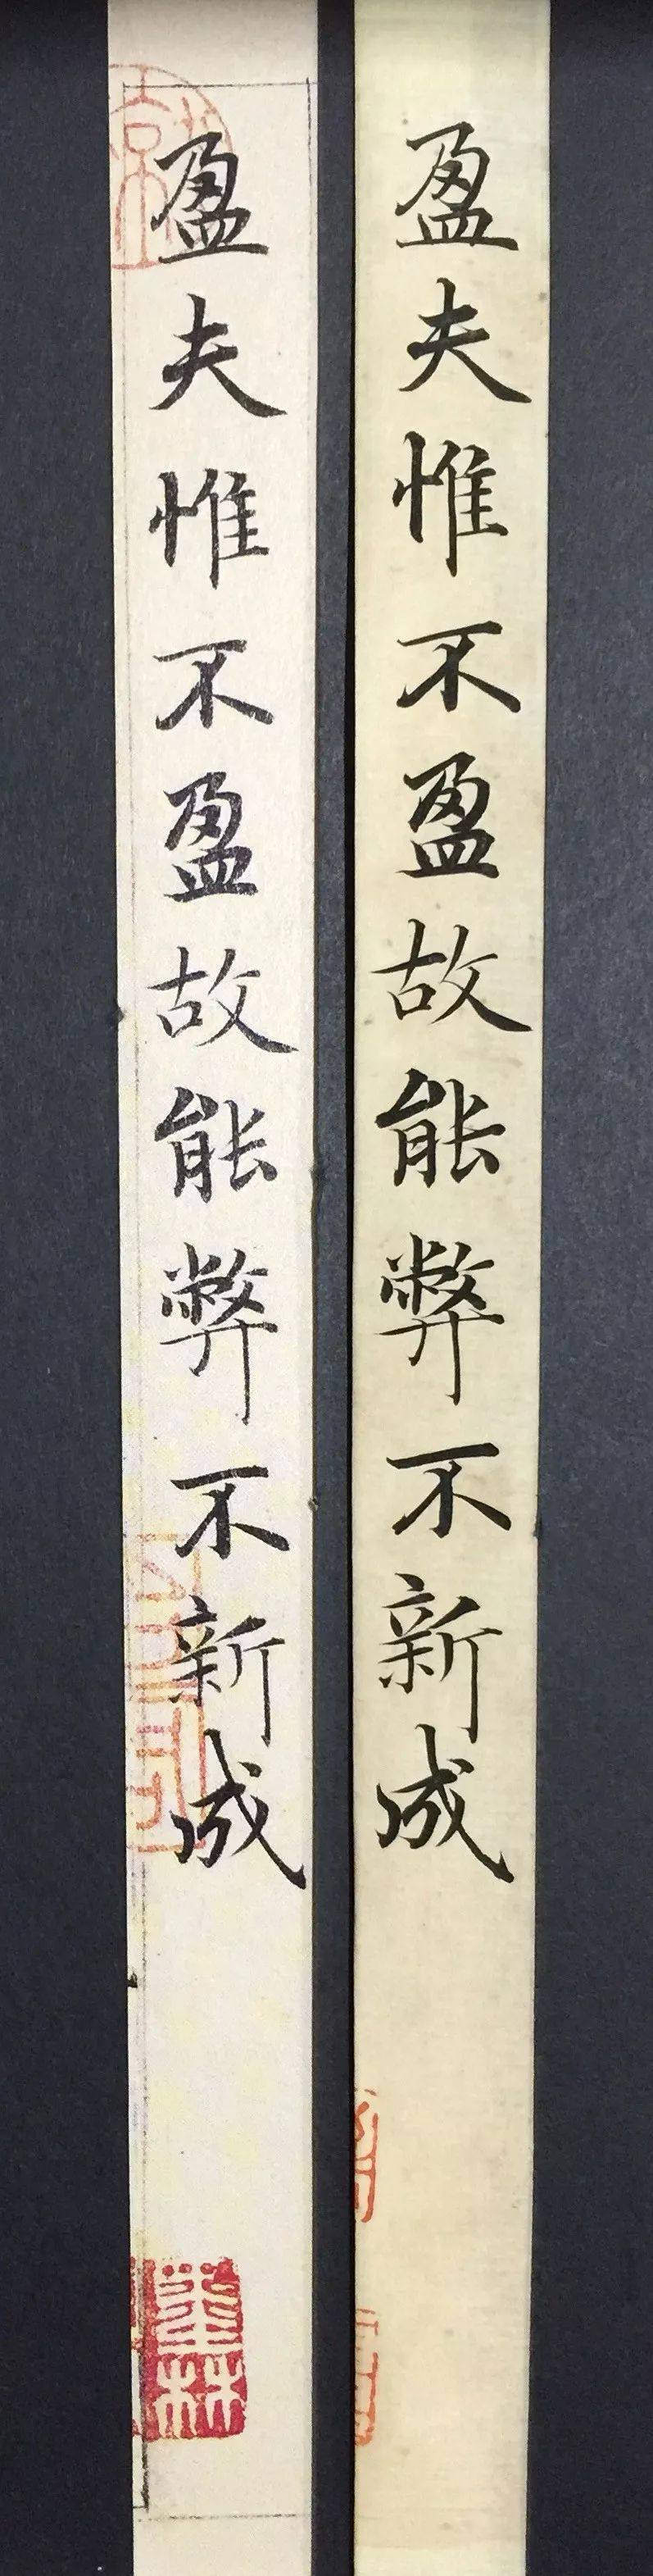 盈夫惟不盈故能弊不新成
盈夫惟不盈故能弊不新成